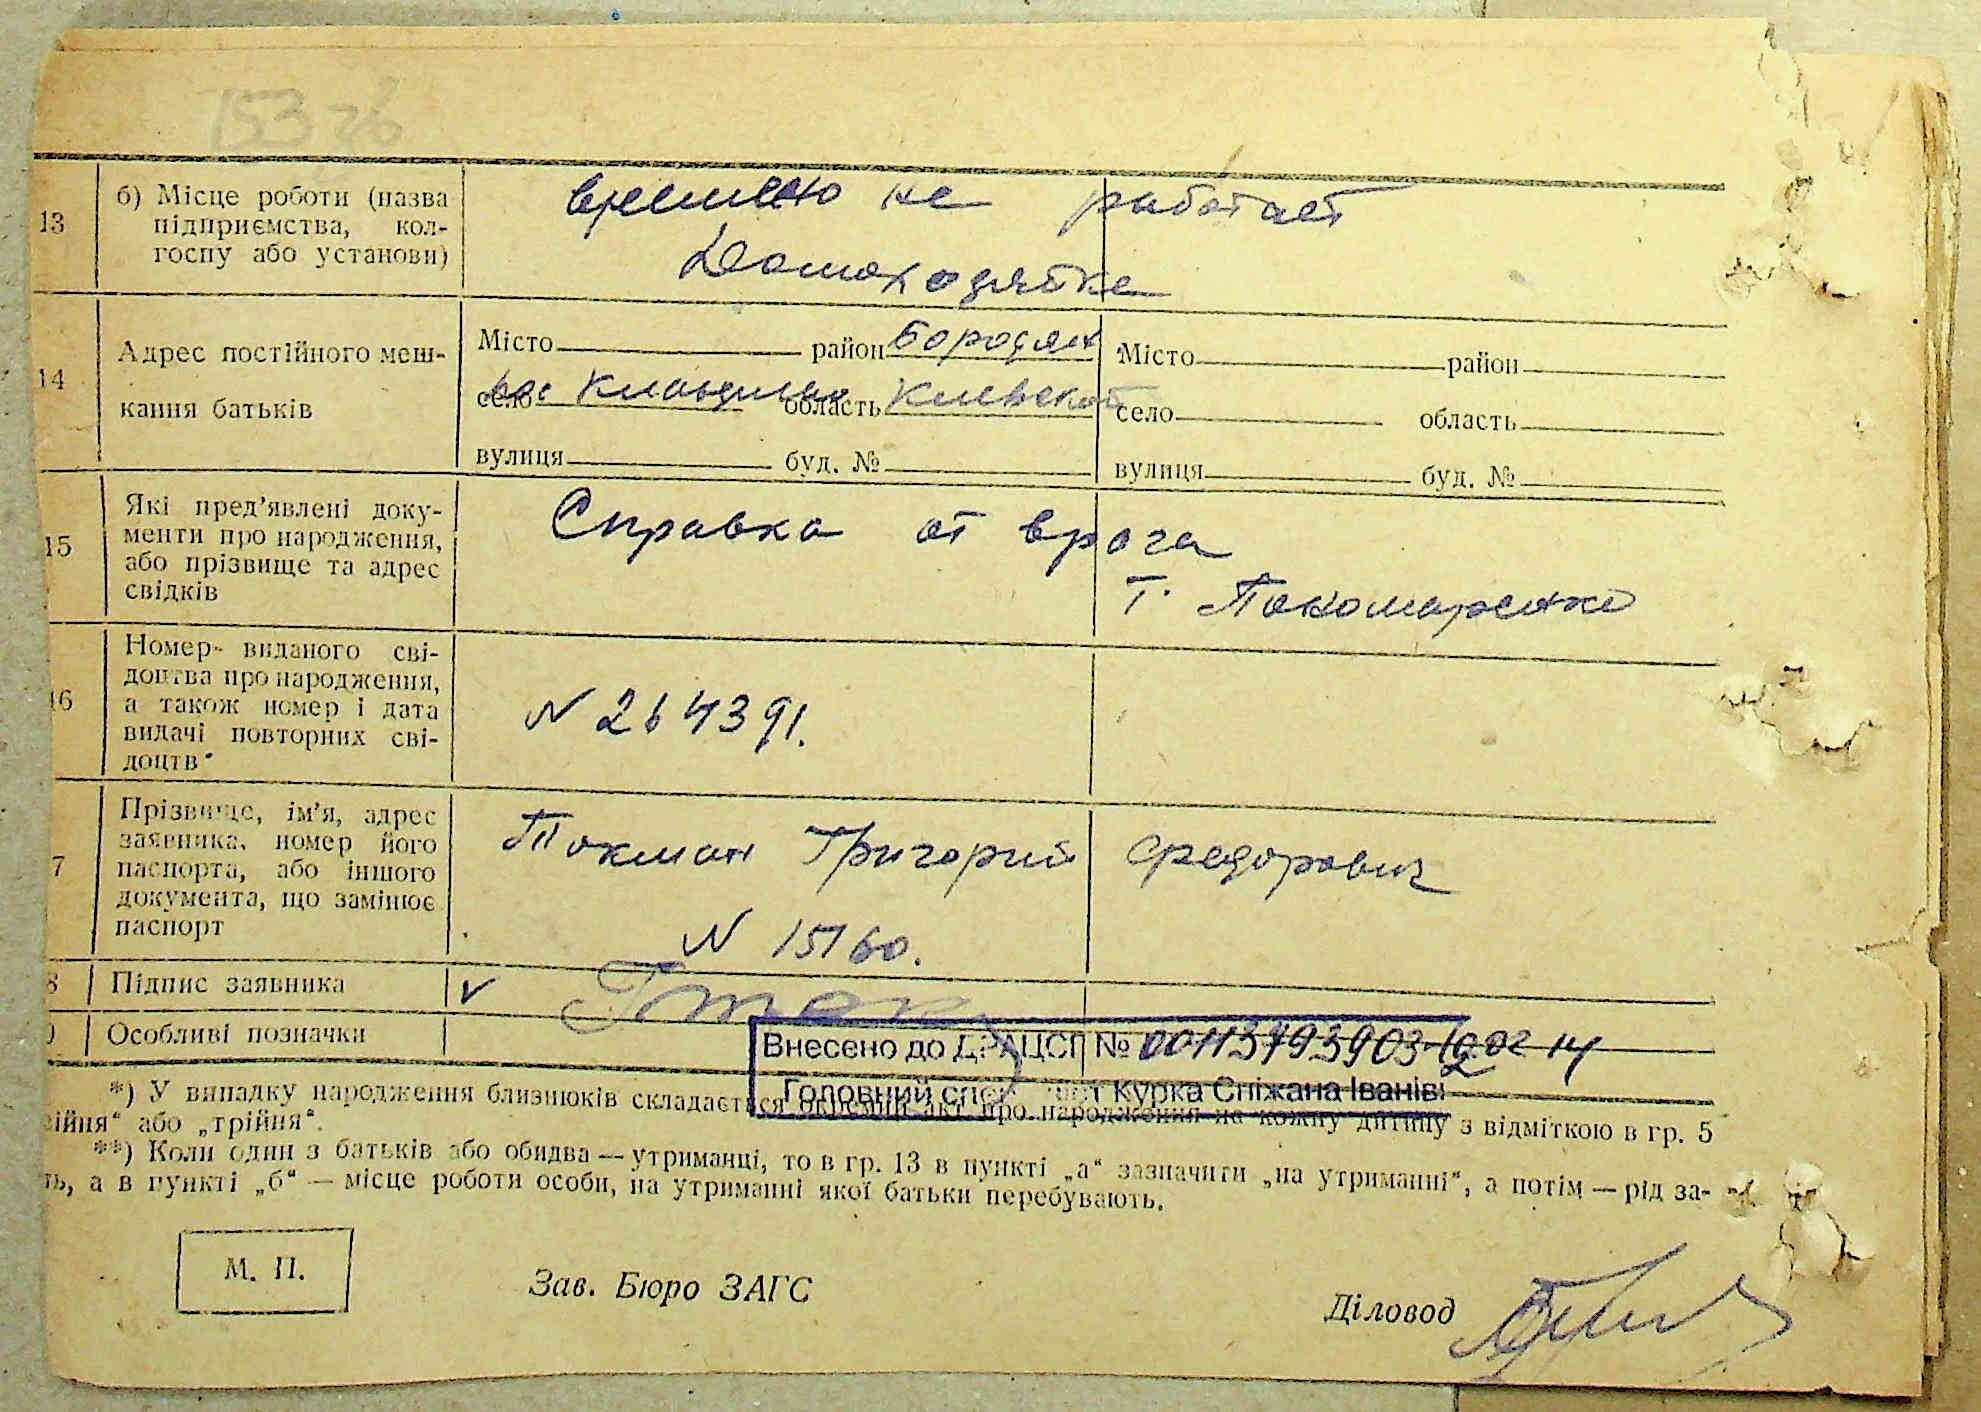 153 зв
13 б) Місце роботи (назва підприємства, колгоспу або установи)
временно не работает
Домохозяйке
14 Адрес постійного мешкання батьків
Місто район Бородян Місто район
село Клавдиево область Киевской село область
вулиця буд. № вулиця буд. №
15 Які пред’явлені документи про народження, або прізвище та адрес свідків
Справка от врача
т. Пономаренко
16 Номер виданого свідоцтва про народження, а також номер і дата видачі повторних свідоцтв
N 264391.
7 Прізвище, ім’я, адрес заявника, номер його паспорта, або іншого документа, що замінює паспорт
Токман Григорий Федорович
N 15160.
8 Підпис заявника
Особливі позначки
Внесено до ДРАЦСГ № 00113793903
Головний спеціаліст Курка Сніжана Іванів
*) У випадку народження близнюків складається окремий акт про народження на кожну дитину з відміткою в гр. 5
ійня“ або „трійня“.
**) Коли один з батьків або обидва — утриманці, то в гр. 13 в пункті „а“ зазначити „на утриманні“, а потім — рід за-
ть, а в пункті „б“ — місце роботи особи, на утриманні якої батьки перебувають.
М. П.
Зав. Бюро ЗАГС
Діловод